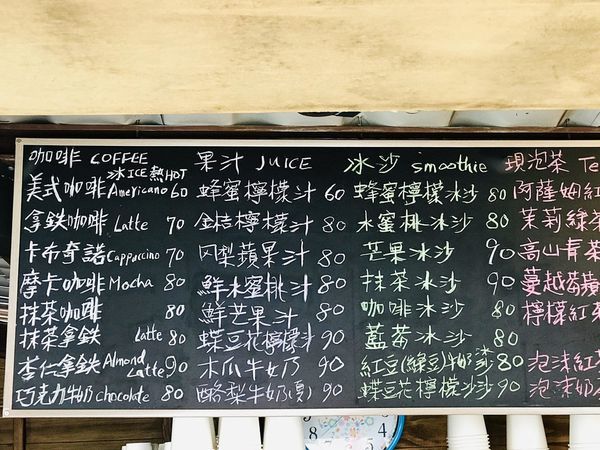 咖啡 COFFEE
冰ICE 熱HOT
美式咖啡 Americano 60
拿鉄咖啡 Latte 70
卡布奇諾 Cappuccino 70
摩卡咖啡 Mocha 80
抹茶咖啡 80
抹茶拿鉄 Latte 80
杏仁拿鉄 Almond Latte 90
巧克力牛奶 chocolate 80
果汁 JUICE
蜂蜜檸檬汁 60
金桔檸檬汁 80
冈梨蘋果汁 80
鮮水蜜桃汁 80
鮮芒果汁 80
蝶豆花檸檬汁 90
木瓜牛奶 90
酪梨牛奶(價) 90
冰沙 smoothie
蜂蜜檸檬冰沙 80
水蜜桃冰沙 80
芒果冰沙 90
抹茶冰沙 90
咖啡冰沙 80
藍莓冰沙 80
紅豆(綠豆)牛奶冰 80
蝶豆花檸檬沙 90
現泡茶 Te
阿薩姆紅
茉莉綠茶
高山青茶
蔓越莓蘋
檸檬紅茶
泡沫紅
泡沫奶
8 7 6 5 4